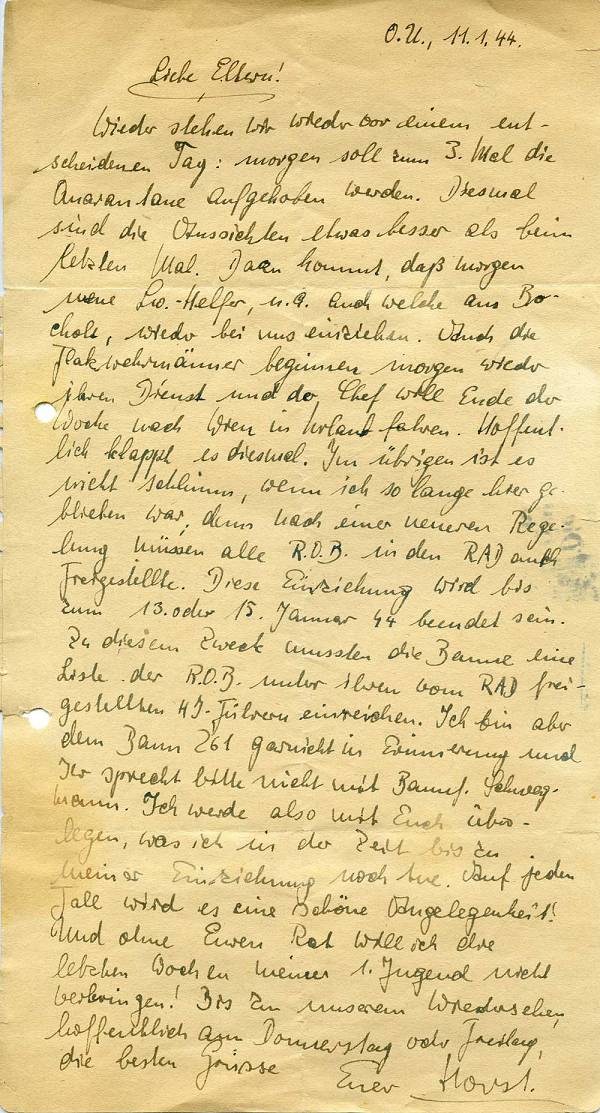 O.U., 11.1.44.
Liebe Eltern!
Wieder stehen wir wieder vor einem ent-
scheidenen Tag: morgen soll zum 3. Mal die
Quarantäne aufgehoben werden. Diesmal
sind die Aussichten etwas besser als beim
letzten Mal. Dazu kommt, daß morgen
neue Lw.-Helfer, u.a. auch welche aus Bo-
cholt, wieder bei uns einziehen. Auch die
Flakwehrmänner beginnen morgen wieder
ihren Dienst und der Chef will Ende der
Woche nach Wien in Urlaub fahren. Hoffent-
lich klappt es diesmal. Im übrigen ist es
nicht schlimm, wenn ich so lange hier ge-
blieben war, denn nach einer neueren Rege-
lung müssen alle R.O.B. in den RAD auch
Freigestellte. Diese Einziehung wird bis
zum 13. oder 15. Januar 44 beendet sein.
Zu diesem Zweck mussten die Banne eine
Liste der R.O.B. unter ihren vom RAD frei-
gestellten HJ-Führern einreichen. Ich bin aber
dem Bann 261 garnicht in Erinnerung und
Ihr sprecht bitte nicht mit Bannf.
mann. Ich werde also mit Euch über-
legen, was ich in der Zeit bis zu
meiner Einziehung noch tue. Auf jeden
Fall wird es eine schöne Angelegenheit!
Und ohne Euren Rat will ich die
letzten Wochen meiner 1. Jugend nicht
verbringen! Bis zu unserem Wiedersehen,
hoffentlich am Donnerstag oder Freitag,
die besten Grüsse Euer Horst.